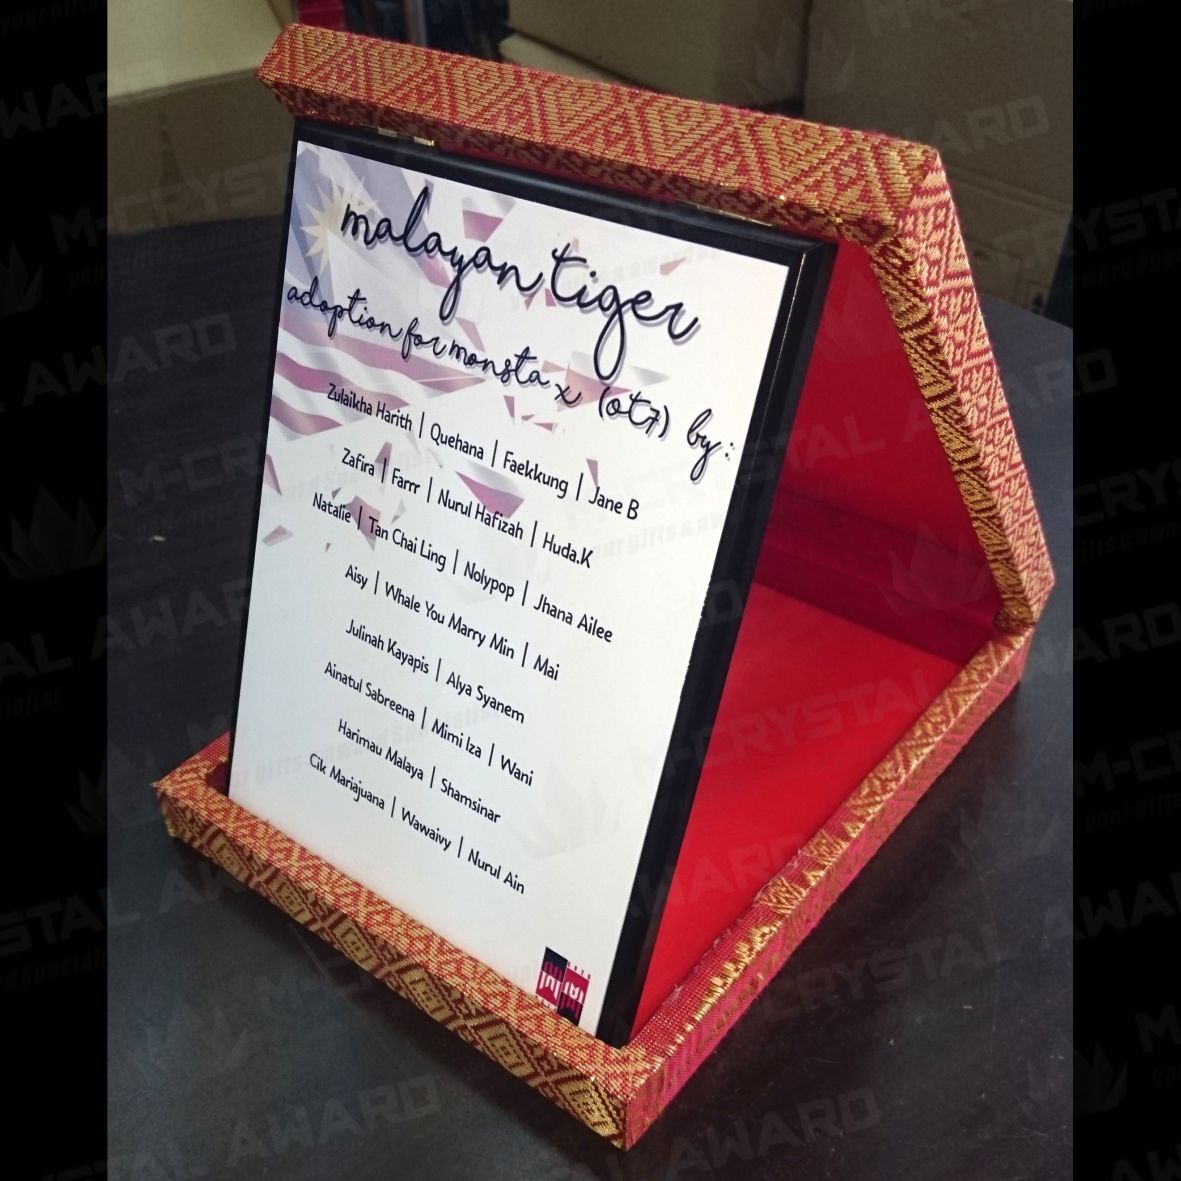 malayan tiger
adoption for monsta x (ot7) by:
Zulaikha Harith | Quehana | Faekkung | Jane B
Zafira | Farrr | Nurul Hafizah | Huda.K
Natalie | Tan Chai Ling | Nolypop | Jhana Ailee
Aisy | Whale You Marry Min | Mai
Julinah Kayapis | Alya Syanem
Ainatul Sabreena | Mimi Iza | Wani
Harimau Malaya | Shamsinar
Cik Mariajuana | Wawaivy | Nurul Ain
M-CRYSTAL AWARD
your gifts & award Specialist